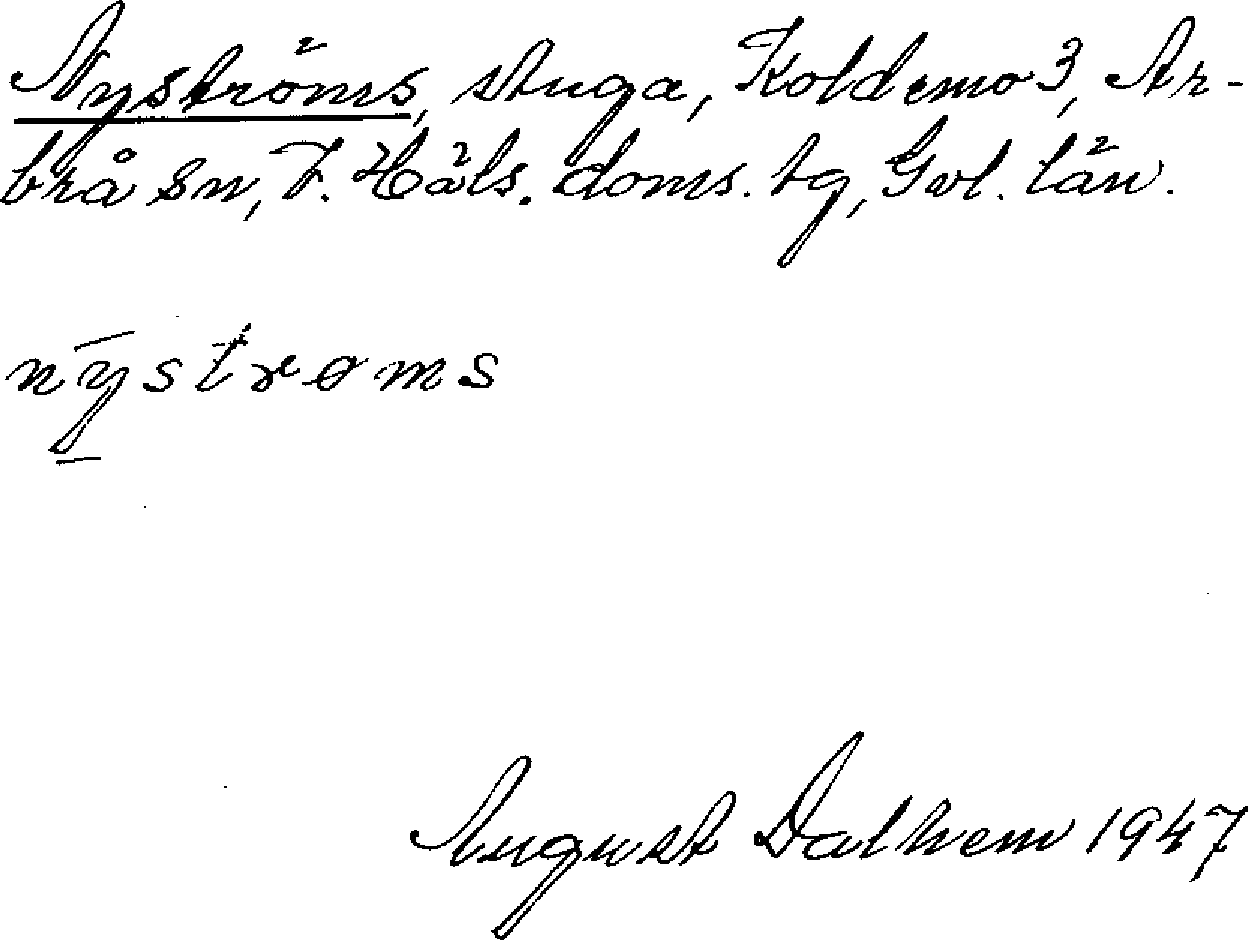 Nyströms, stuga, Koldemo 3, Ar-
brå sn, V. Häls. doms. tg, Gvl. län.
nȳstrøms
August Dalhem 1947